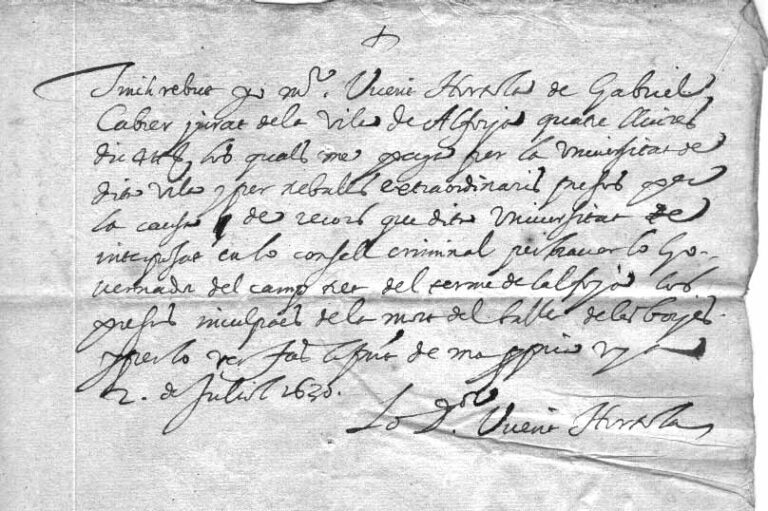 Tinch rebut jo mº. Vicent Hortola de Gabriel
Cabrer jurat de la vila de Alforja quatre lliures
dic 4 ll, los quals me paga per la universitat de
dita vila y per treballs extraordinaris presos per
la causa de recors que dita universitat te
interposat en lo consell criminal per haver lo Go-
vernador del camp tret del terme de lalforja los
presos inculpats de la mort del batlle de las borjes.
y per lo ver fas la pnt de ma ppia vy
2. de Juliol 1630.
Lo Dor. Vicent Hortola